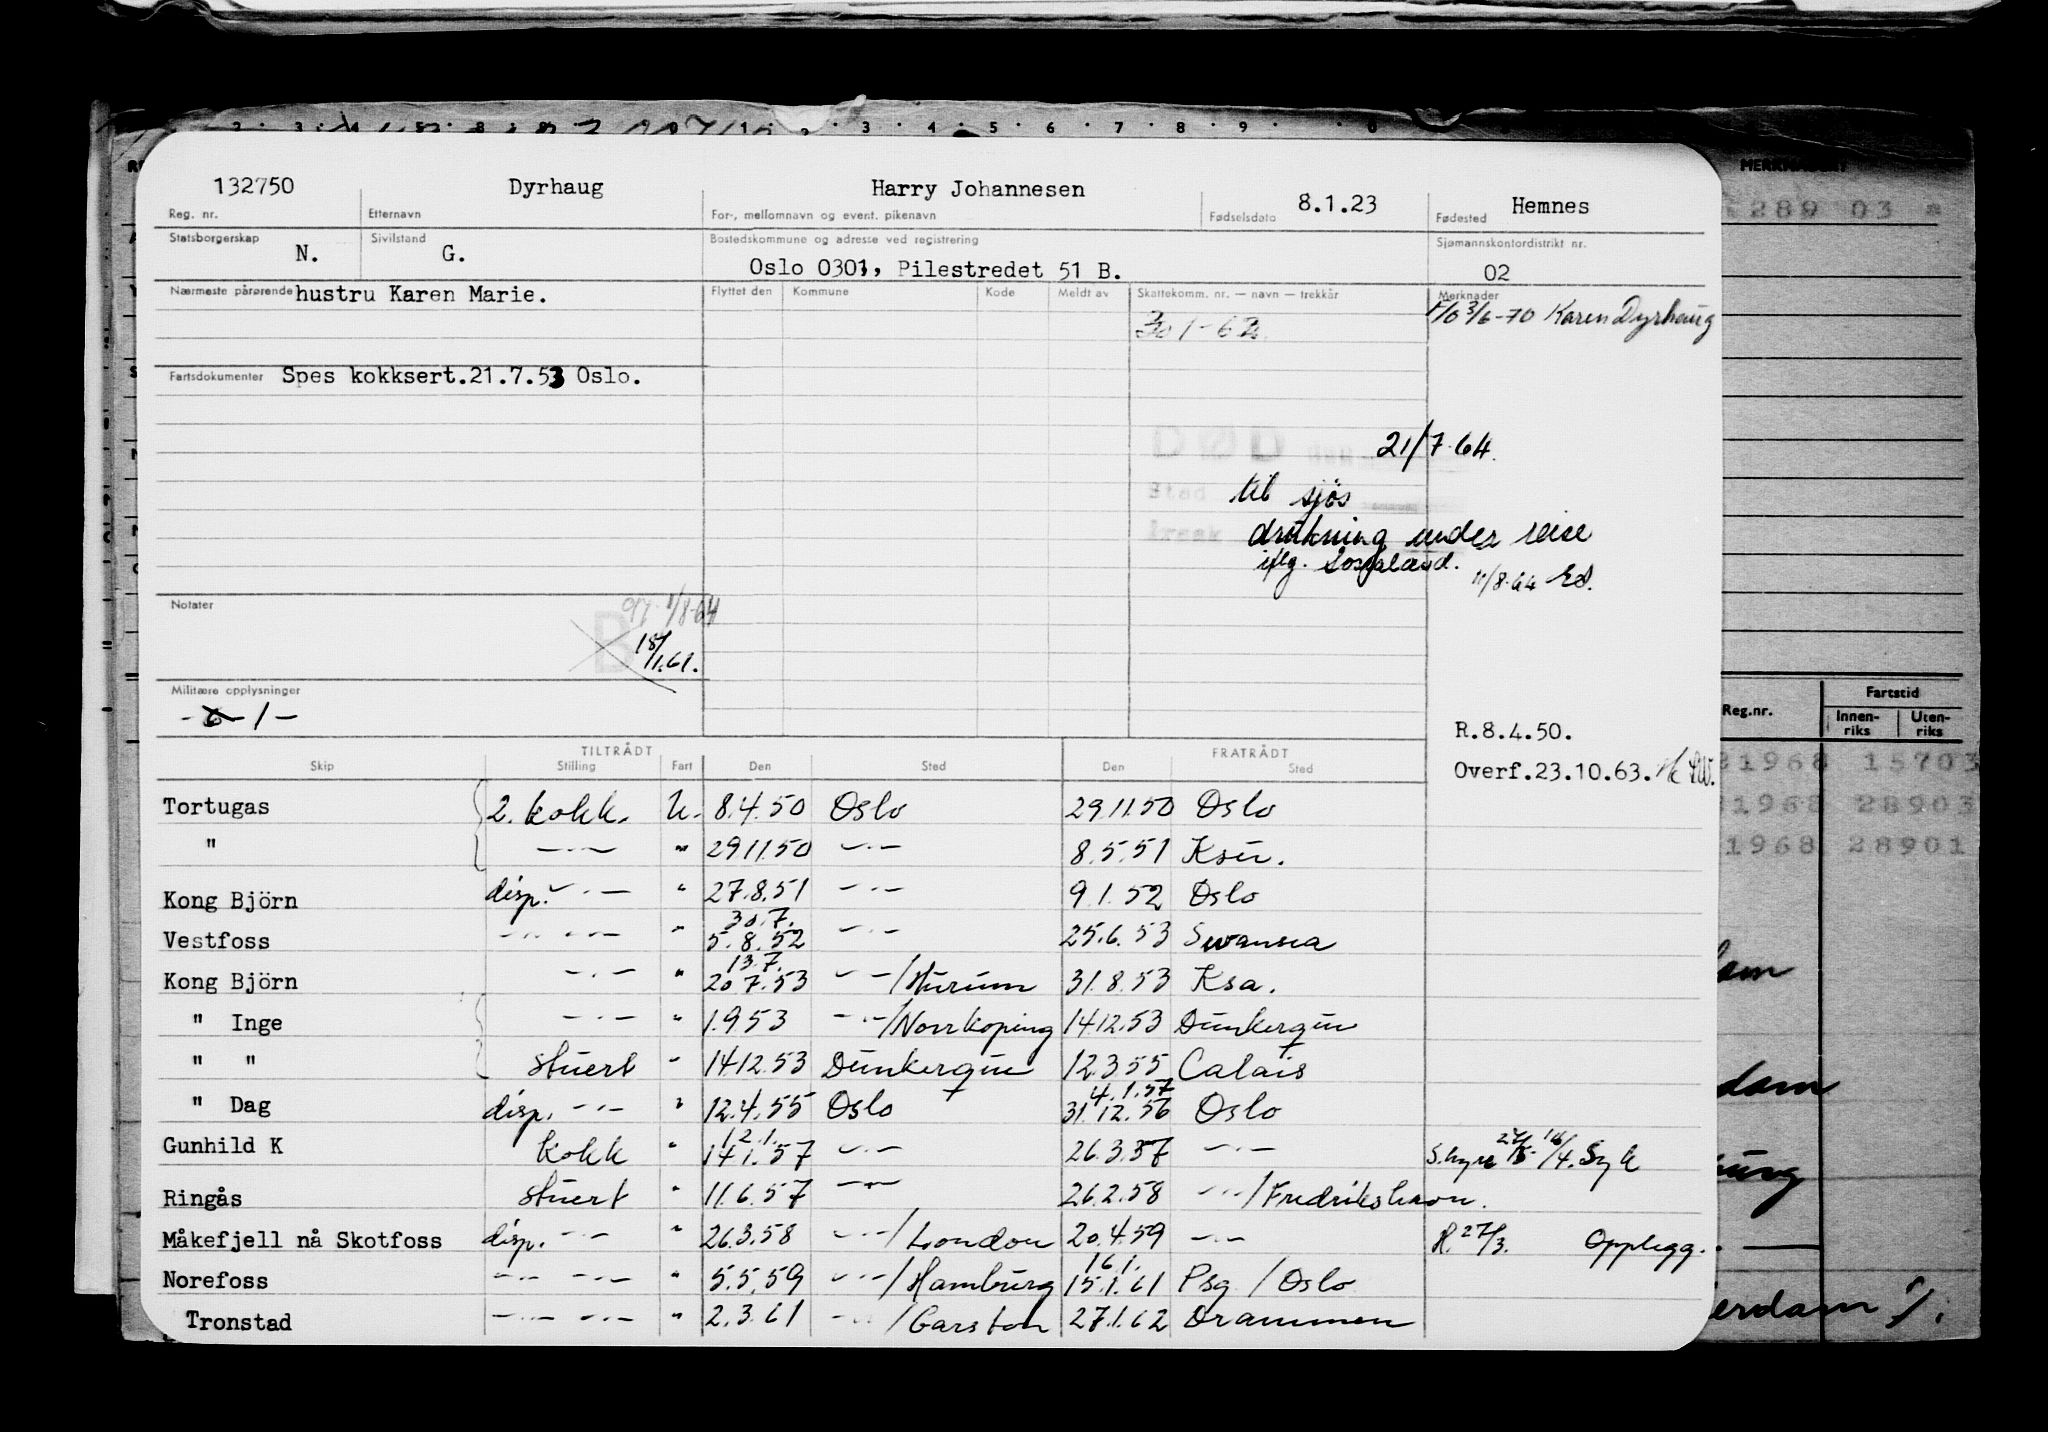 132750 Dyrhaug Harry Johannesen 8.1.23 Hemnes
Reg. nr. Etternavn For-, mellomnavn og event. pikenavn Fødselsdato Fødested
Statsborgerskap N. Sivilstand G. Bostedskommune og adresse ved registrering Sjømannskontordistrikt nr.
Oslo 0301, Pilestredet 51 B. 02
Nærmeste pårørende hustru Karen Marie. Flyttet den Kommune Kode Meldt av Skattekomm. nr. — navn — trekkår Merknader
301-62 3/6-70 Karen Dyrhaug
Fartsdokumenter Spes kokksert.21.7.53 Oslo.
DØD den 21/7-64.
Sted til sjøs
Årsak drukning under reise
iflg. 11/8-64
Notater 1/8-64
B 18/1.61.
Militære opplysninger
- 6 - 1 -
R.8.4.50.
Overf.23.10.63.
TILTRÅDT FRATRÅDT
Skip Stilling Fart Den Sted Den Sted
Tortugas 2. kokk. U. 8.4.50 Oslo 29.11.50 Oslo
" —·— " 29.11.50 —·— 8.5.51 Ksu.
Kong Björn disp. —·— " 27.8.51 —·— 9.1.52 Oslo
Vestfoss —·— —·— " 30.7. 5.8.52 —·— 25.6.53 Swansea
Kong Björn —·— " 13.7. 20.7.53 —·—/Hurum 31.8.53 Ksa.
" Inge —·— " 1.9.53 —·—/Norrkoping 14.12.53 Dunkerque
" " Stuert " 14.12.53 Dunkerque 12.3.55 Calais
" Dag disp. —·— " 12.4.55 Oslo 4.1.57 31.12.56 Oslo
Gunhild K Kokk " 12.1. 14.1.57 —·— 26.3.57 —·— S.hyre 16/4. Syk
Ringås Stuert " 11.6.57 —·— 26.2.58 —·—/Fredrikshavn.
Måkefjell nå Skotfoss disp. —·— " 26.3.58 —·—/London 20.4.59 —·— H. 27/3. Opplegg.
Norefoss —·— —·— " 5.5.59 —·—/Hamburg 16.1. 15.1.61 Psg / Oslo
Tronstad —·— —·— " 2.3.61 —·—/Garston 27.1.62 Drammen
MERKNADER
289 03 *
Reg.nr. Fartstid
Innen-riks Uten-riks
1968 15703
1968 28903
1968 28901
dam
erdam